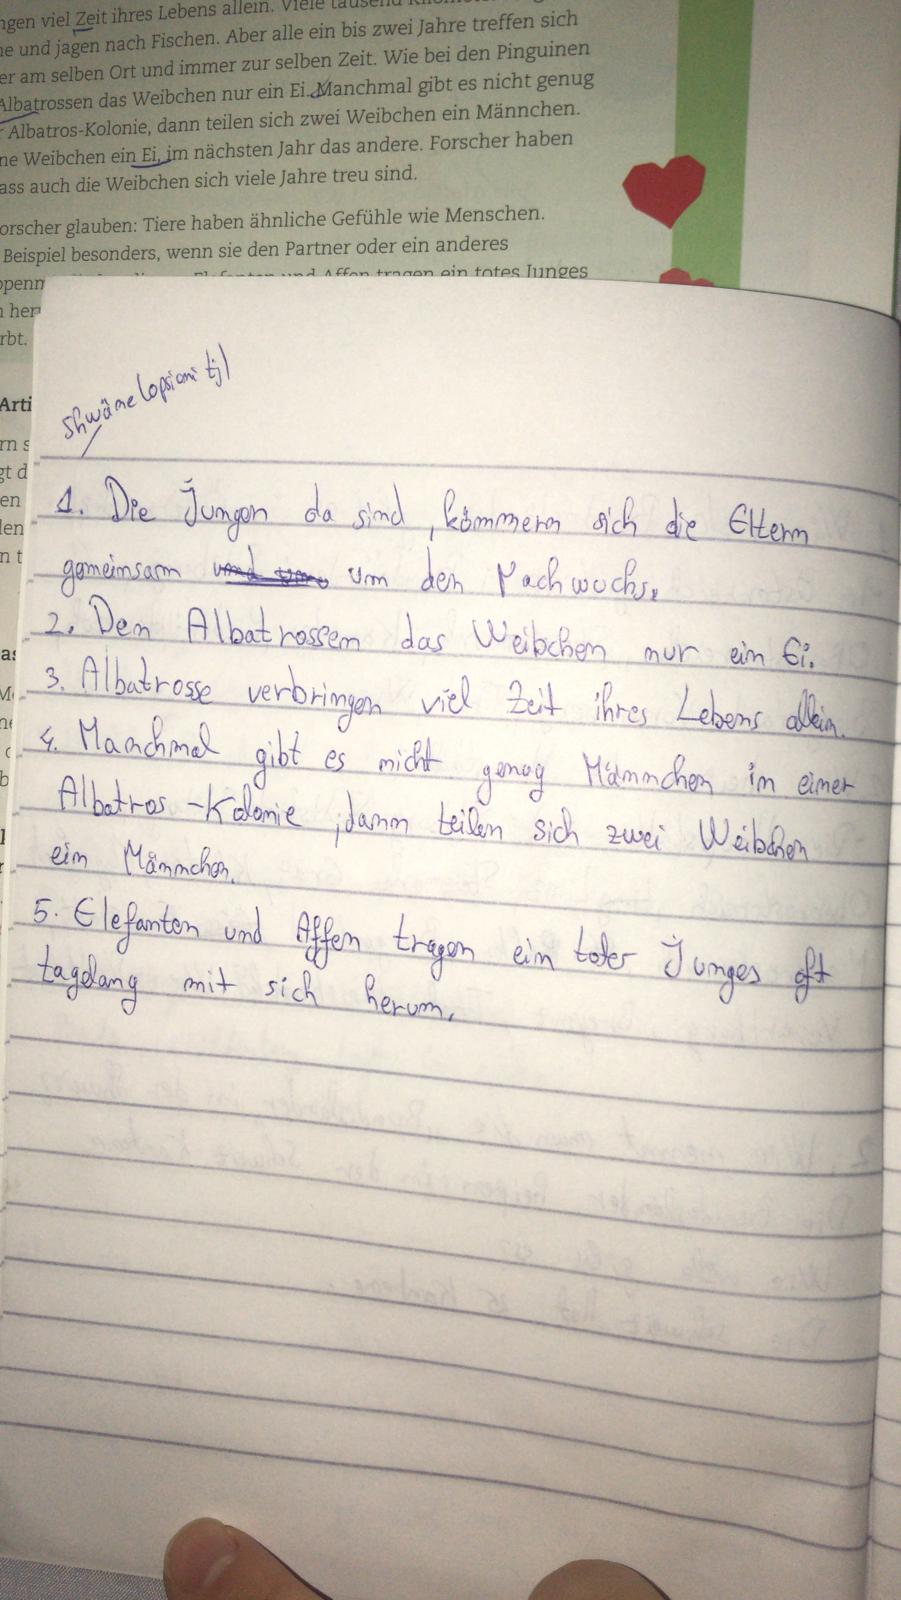 ngen viel Zeit ihres Lebens allein. Viele tausend
ne und jagen nach Fischen. Aber alle ein bis zwei Jahre treffen sich
er am selben Ort und immer zur selben Zeit. Wie bei den Pinguinen
Albatrossen das Weibchen nur ein Ei. Manchmal gibt es nicht genug
r Albatros-Kolonie, dann teilen sich zwei Weibchen ein Männchen.
ne Weibchen ein Ei, im nächsten Jahr das andere. Forscher haben
ass auch die Weibchen sich viele Jahre treu sind.
orscher glauben: Tiere haben ähnliche Gefühle wie Menschen.
Beispiel besonders, wenn sie den Partner oder ein anderes
und Affen tragen ein totes Junges
n her
rbt.
Arti
rn s
gt d
en
len
n t
shwäne
1. Die Jungen da sind, kömmern sich die Eltern
gemeinsam um den Nachwuchs.
2. Den Albatrossen das Weibchen nur ein Ei.
3. Albatrosse verbringen viel Zeit ihres Lebens allein.
4. Manchmal gibt es nicht genug Männchen in einer
Albatros-Kolonie, dann teilen sich zwei Weibchen
ein Männchen.
5. Elefanten und Affen tragen ein totes Junges oft
tagelang mit sich herum.